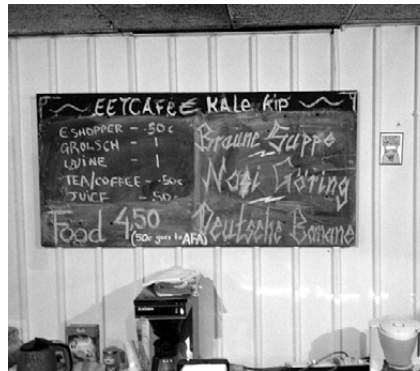 EETCAFÉE KALE KIP
ESHOPPER - .50c
GROLSCH - 1
WINE - 1
TEA/COFFEE - .50c
JUICE - .50c
Food 4,50
(50c goes to AFA)
Braune Suppe
Nasi Göring
Deutsche Banane